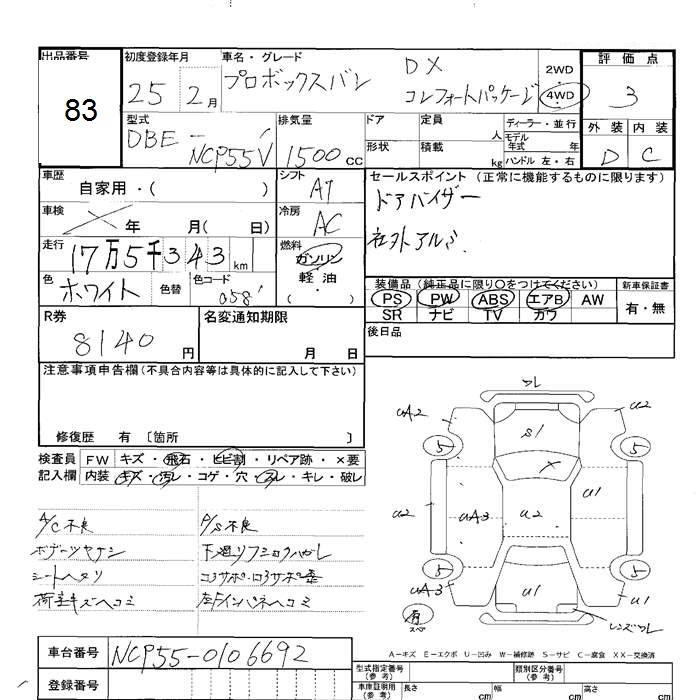 出品番号 初度登録年月 車名・グレード 評価点
83 25 2月 プロボックスバン DX コンフォートパッケージ 2WD 4WD 3
型式 DBE-NCP55V 排気量 1500CC ドア 定員 人 ディーラー・並行 外装 内装
形状 積載 kg モデル年式 年 ハンドル 左・右 D C
車歴 自家用・( ) シフト AT セールスポイント (正常に機能するものに限ります)
車検 年 月( 日) 冷房 AC ドアバイザー
走行 17万5千343km 燃料 ガソリン 社外アルミ
軽油・( )
色 ホワイト 色替 色コード 058 装備品 (純正品に限り○をつけてください) 新車保証書
PS PW ABS エアB AW 有・無
SR ナビ TV ガワ
R券 8140円 名変通知期限 月 日 後日品
注意事項申告欄(不具合内容等は具体的に記入して下さい)
修復歴 有 〔箇所 〕
検査員 FW キズ・飛石・ヒビ割・リペア跡・×要
記入欄 内装 キズ・汚レ・コゲ・穴・スレ・キレ・破レ
A/C不良 P/S不良
ボデーツヤナシ 下廻リフショクハガレ
シートヘタリ コアサポ・ロアサポ歪
荷室キズヘコミ 左Fインパネヘコミ
ワレ
uA2 u2
S1
5 5
X
u1
u2 uA3 u2
5 5
uA3 u1 u
有 スペア レンズワレ
A-キズ E-エクボ U-凹み W-補修跡 S-サビ C-腐食 XX-交換済
車台番号 NCP55-0106692
型式指定番号(参考) 類別区分番号(参考)
登録番号 車庫証明用(参考) 長さ cm 幅 cm 高さ cm